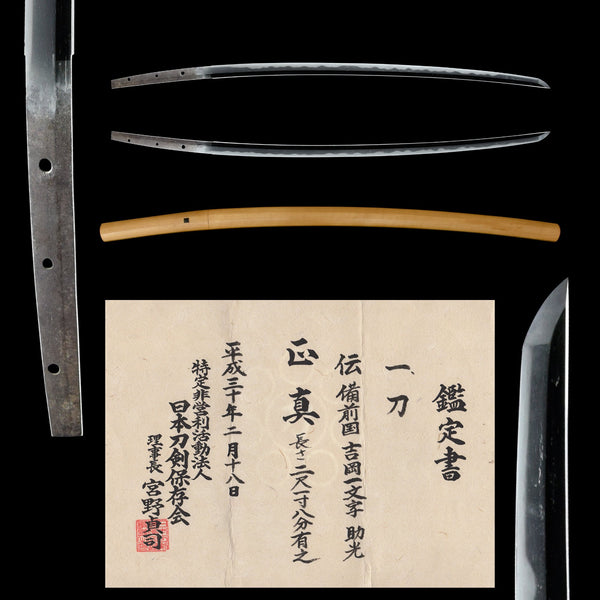 鑑定書
一刀
伝 備前国 吉岡一文字 助光
正真 長さ二尺一寸八分有之
平成三十年二月十八日
特定非営利活動法人
日本刀剣保存会
理事長 宮野貞司